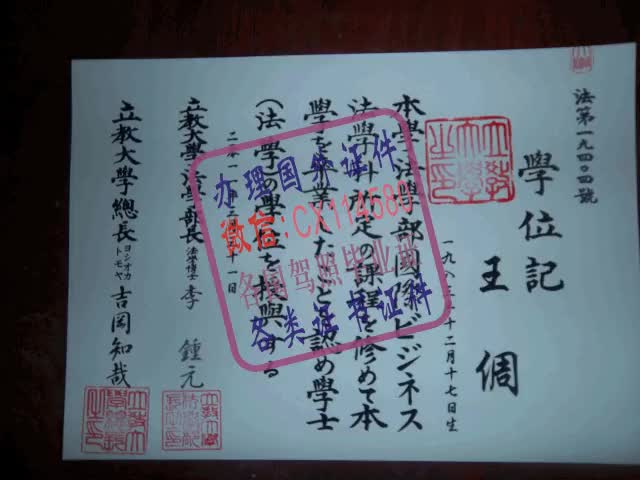 法第一九四〇四號
學位記
王 倜
一九八三年十二月十七日生
立教大學之印
本學法學部國際ビジネス
法學科所定の課程を修めて本
學を卒業したことを認め學士
(法學)の學位を授與する
三月三十一日
立教大學法學部長 法學博士 李 鍾元
立教大學總長 ヨシオカ トモヤ 吉岡知哉
办理国外证件
微信:CX114580
各国驾照毕业
各类证书证